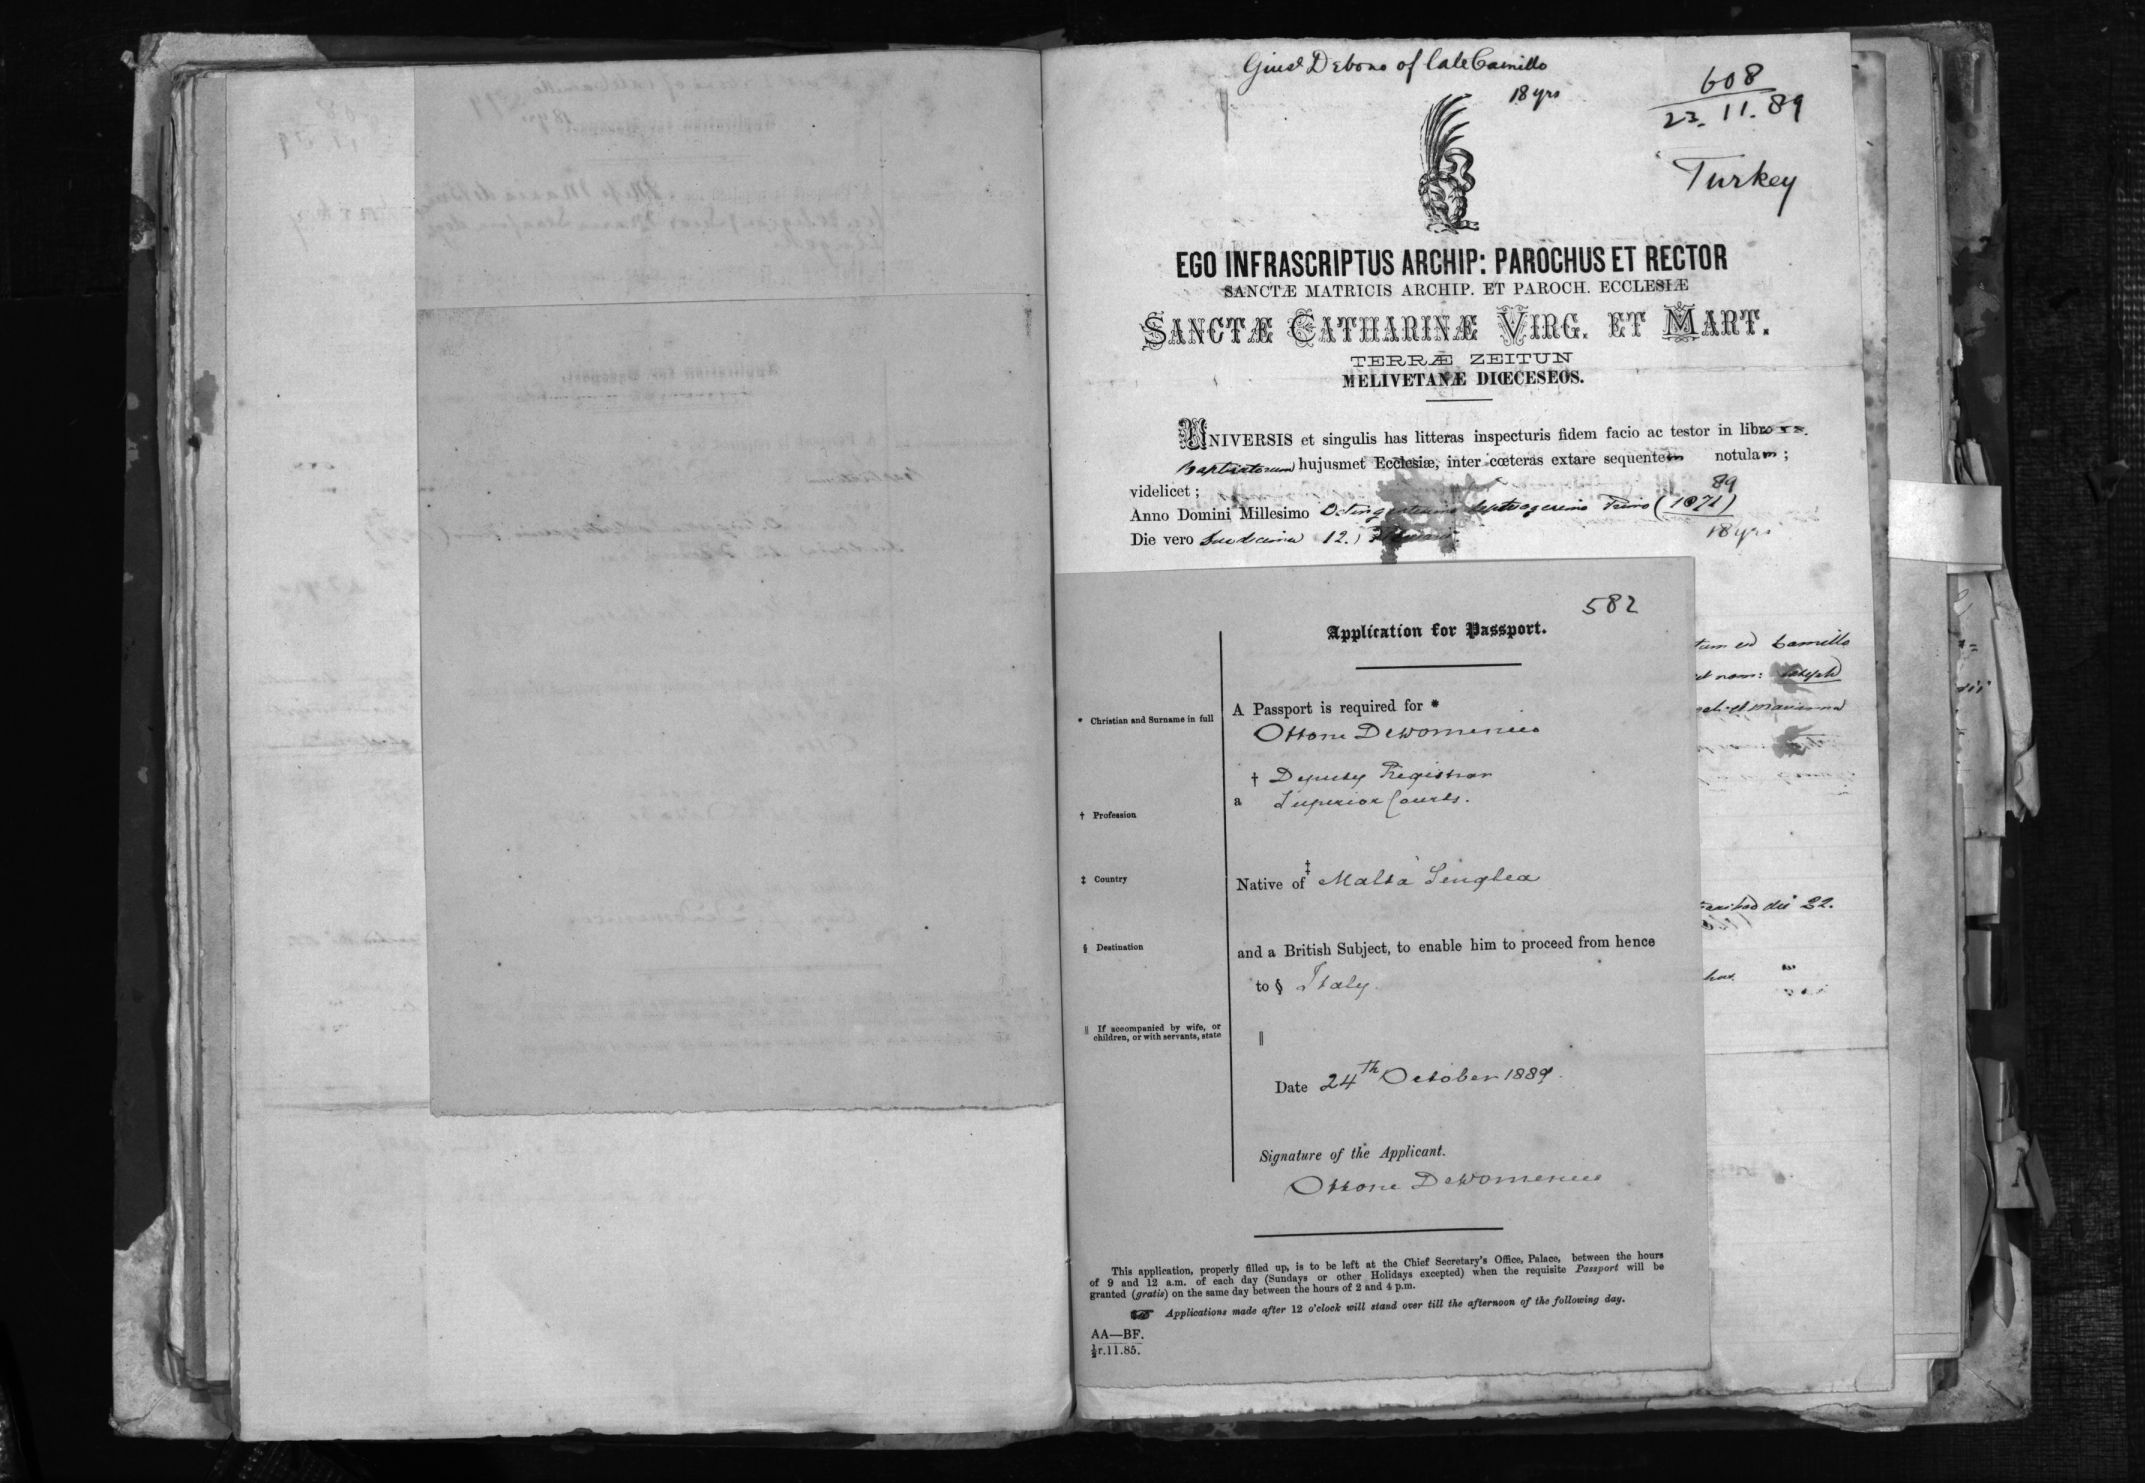 Gius.e Debono of late Camillo
18 yrs
608
23. 11. 89
Turkey
EGO INFRASCRIPTUS ARCHIP: PAROCHUS ET RECTOR
SANCTÆ MATRICIS ARCHIP. ET PAROCH. ECCLESIÆ
SANCTÆ CATHARINÆ VIRG. ET MART.
TERRÆ ZEITUN
MELIVETANÆ DIŒCESEOS.
UNIVERSIS et singulis has litteras inspecturis fidem facio ac testor in libro
Baptizatorum hujusmet Ecclesiæ, inter cœteras extare sequentem notulam ;
videlicet ;
89
Anno Domini Millesimo Octingentesimo septuagesimo Primo (1871)
Die vero duodecima 12. Februarii
18 yrs
tum ex Camillo
et nom: Joseph
et Marianna
die 22.
582
Application for Passport.
* Christian and Surname in full
A Passport is required for *
Ottone Dedomenico
† Deputy Registrar
a Superior Courts.
† Profession
‡ Country
Native of ‡ Malta Senglea
§ Destination
and a British Subject, to enable him to proceed from hence
to § Italy.
‖ If accompanied by wife, or
children, or with servants, state
‖
Date 24th October 1889.
Signature of the Applicant.
Ottone Dedomenico
This application, properly filled up, is to be left at the Chief Secretary's Office, Palace, between the hours
of 9 and 12 a.m. of each day (Sundays or other Holidays excepted) when the requisite Passport will be
granted (gratis) on the same day between the hours of 2 and 4 p.m.
☞ Applications made after 12 o'clock will stand over till the afternoon of the following day.
AA—BF.
½r.11.85.